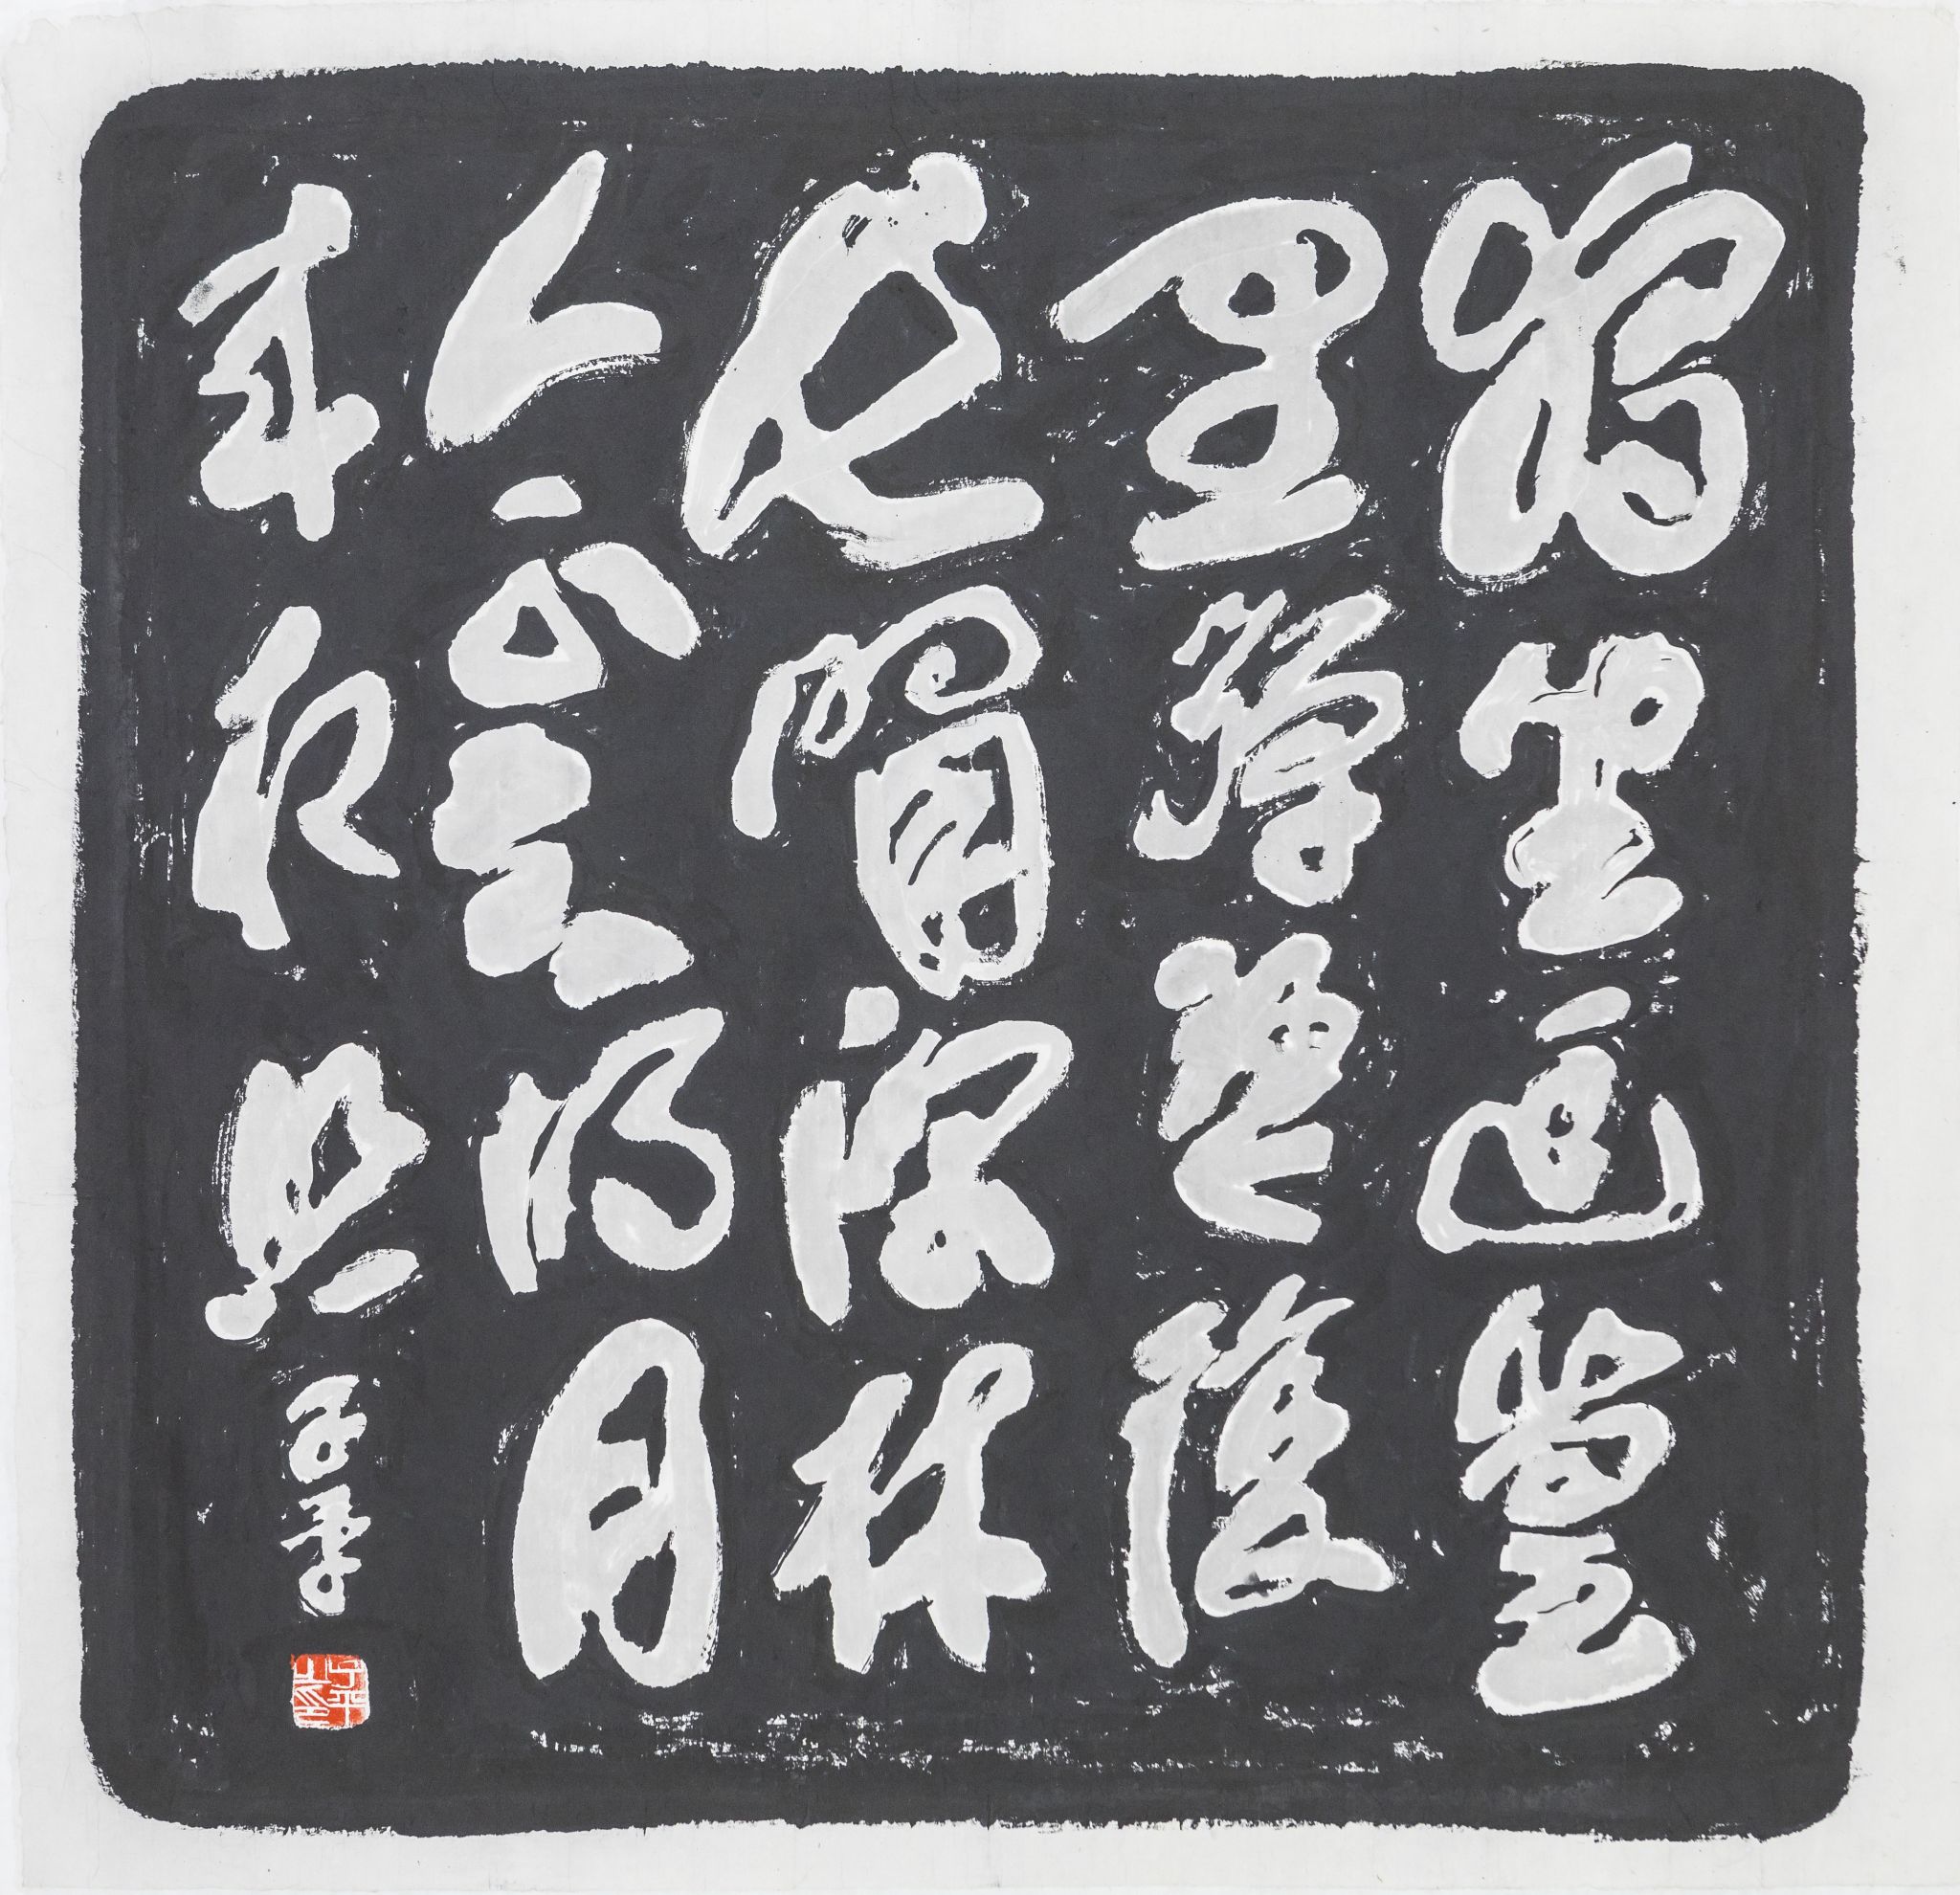 獨坐幽篁
里彈琴復
長嘯深林
人不知明月
來相照